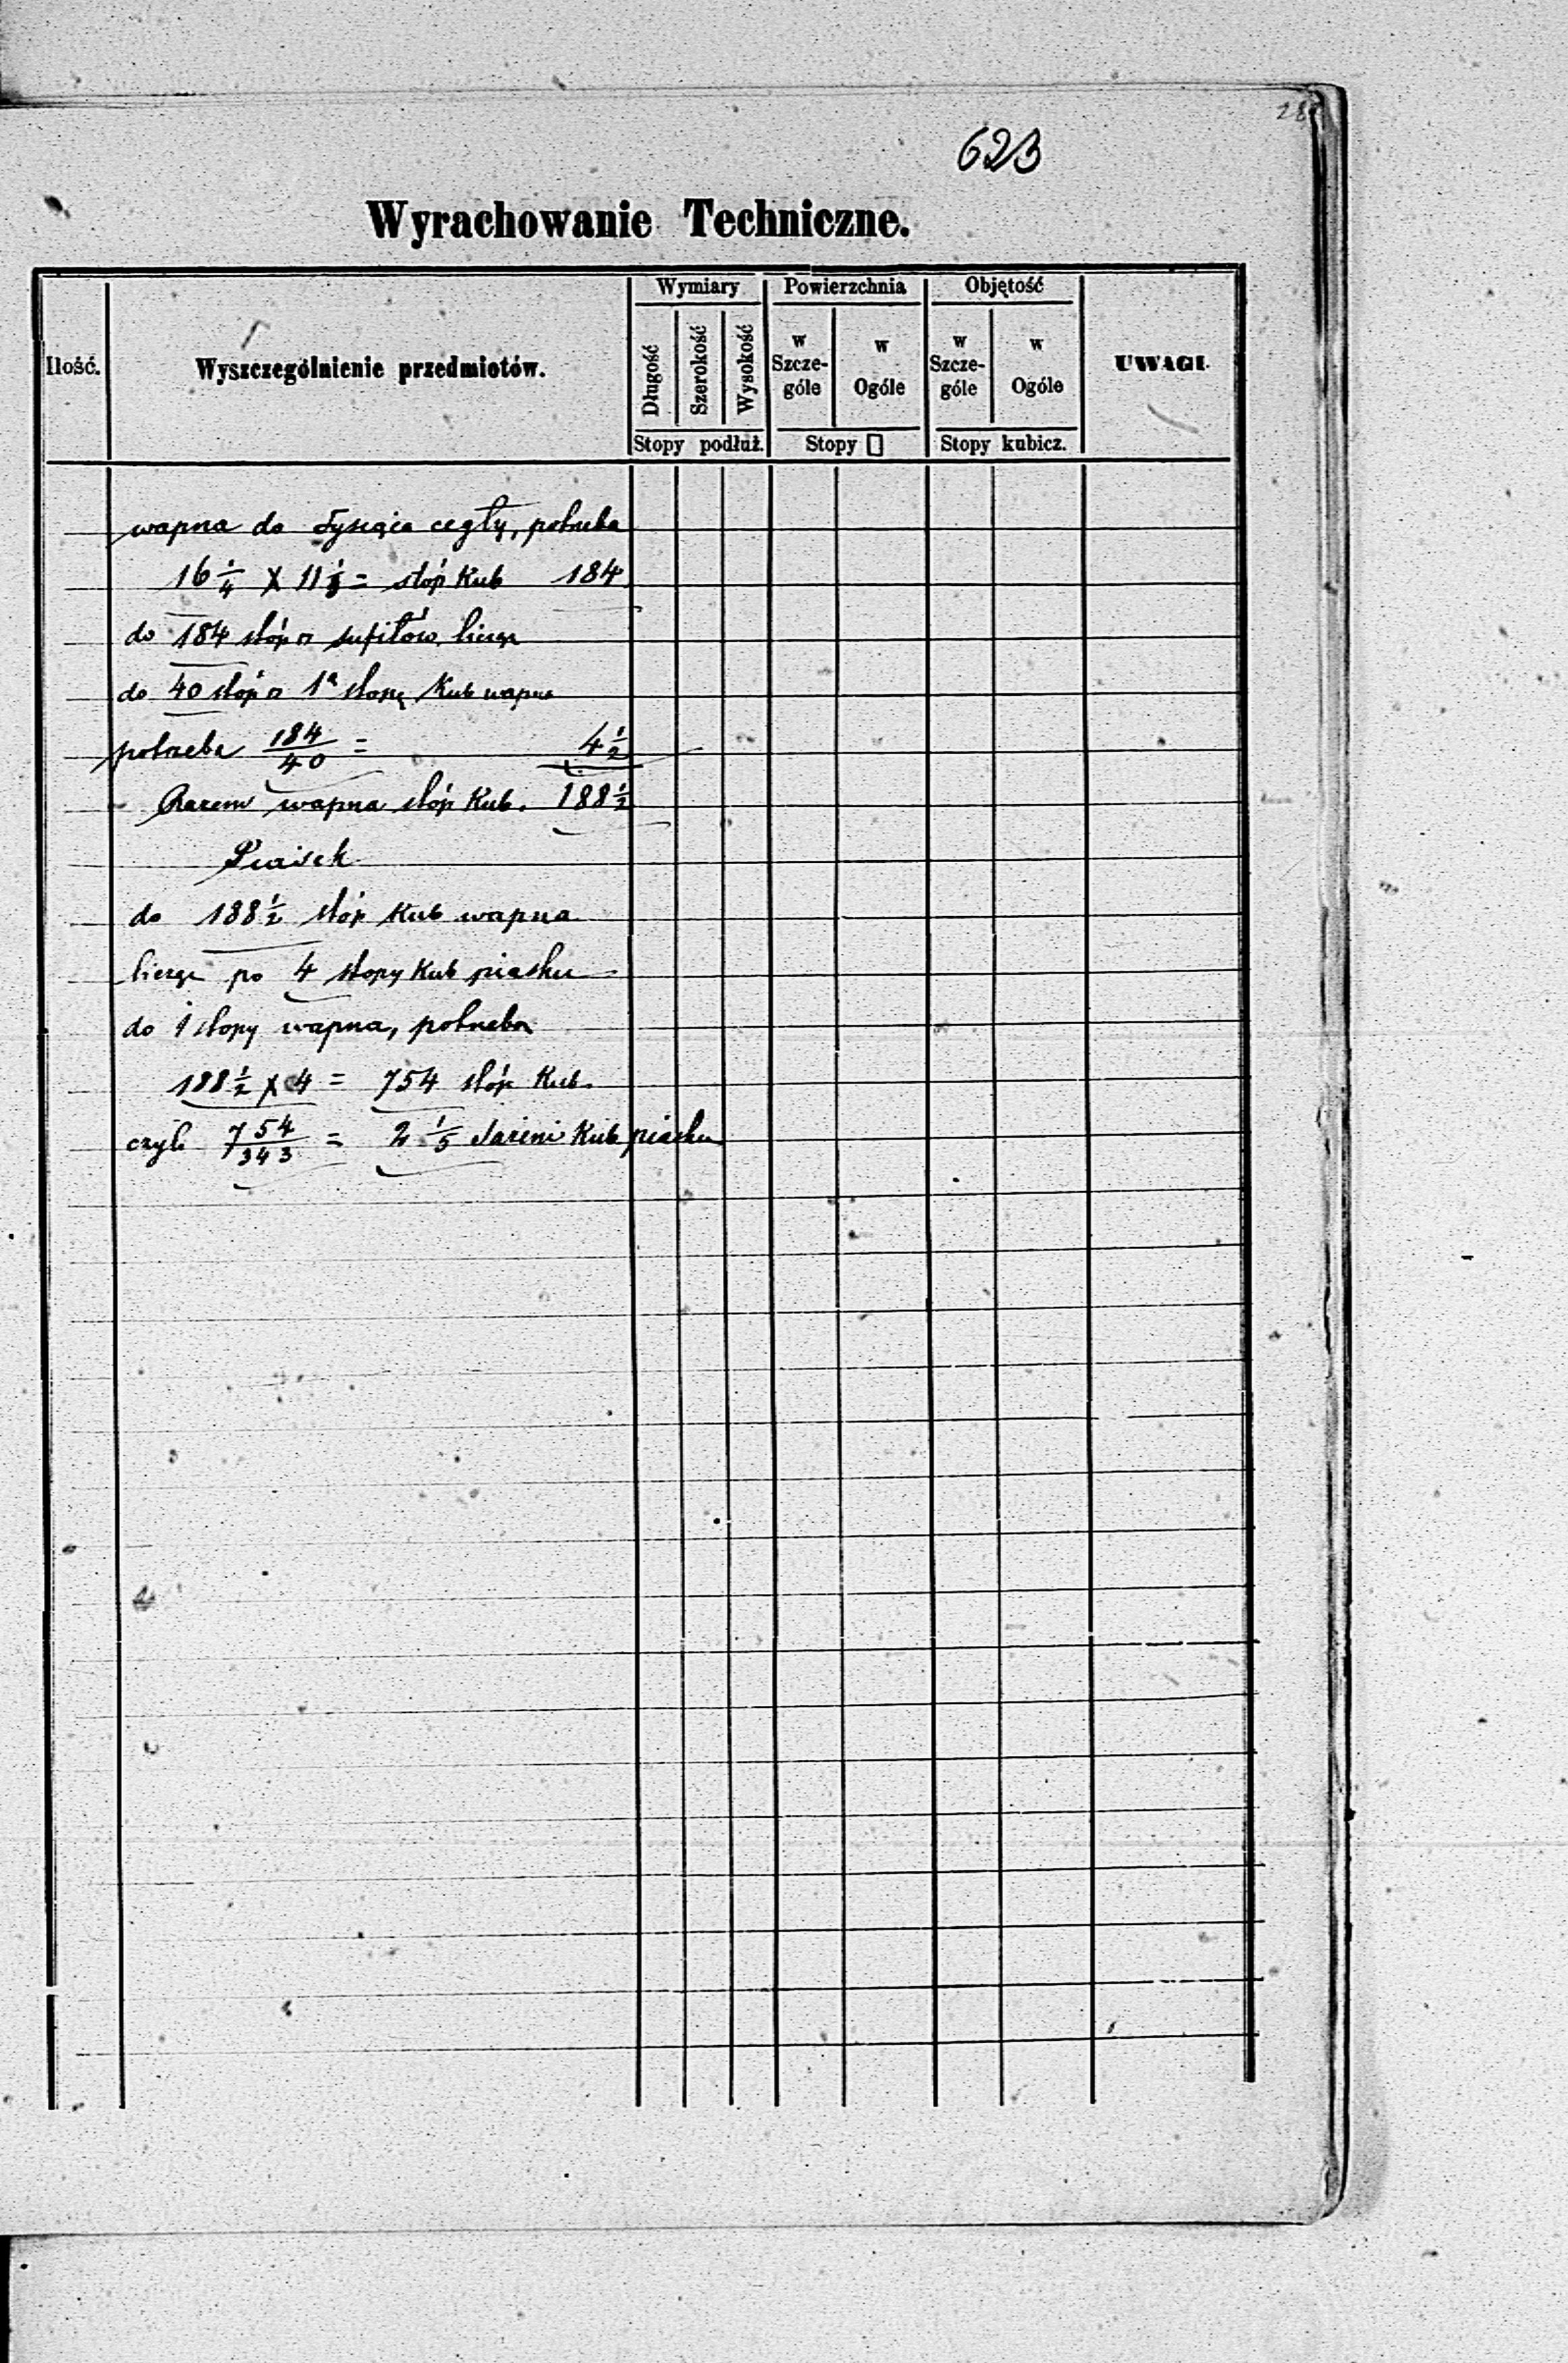 623
Wyrachowanie Techniczne.
Ilość.
Wyszczególnienie przedmiotów.
Wymiary
Długość
Szerokość
Wysokość
Stopy podłuż.
Powierzchnia
w Szcze-
góle
w
Ogóle
Stopy □
Objętość
w Szcze-
góle
w
Ogóle
Stopy kubicz.
UWAGI.
wapna do Tysiąca cegły, potrzeba
16 1/4 X 11 1/3 = stóp Kub 184
do 184 stóp □ sufitów. licząc
do 40 stóp □ 1ą stopę Kub wapna
potrzeba 184/40 = 4 1/2
Razem wapna stóp Kub. 188 1/2
Piasek
do 188 1/2 stóp Kub wapna
licząc po 4 stopy Kub piasku
do 1 stopy wapna, potrzeba
188 1/2 x 4 = 754 stóp Kub.
czyli 754/343 = 2 1/5 sażeni Kub piasku